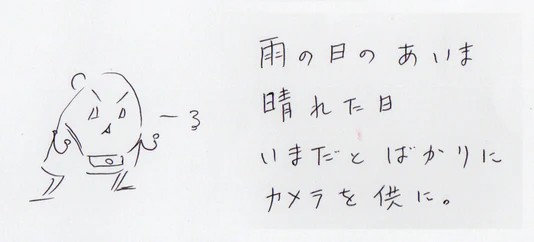 雨の日のあいま
晴れた日
いまだとばかりに
カメラを供に。